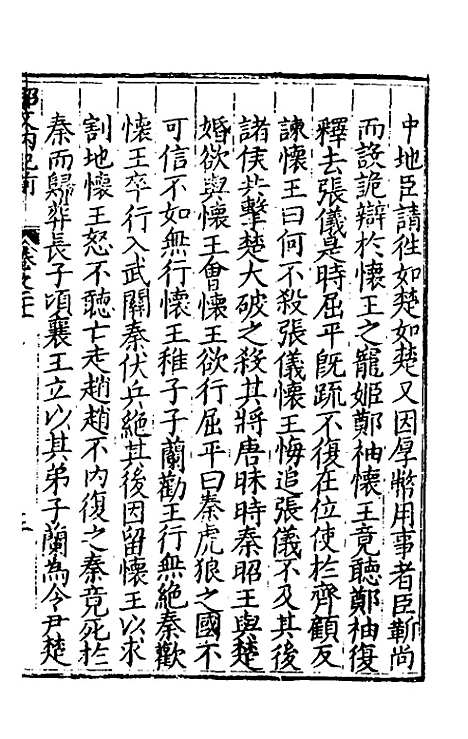 中地臣請往如楚如楚又因厚幣用事者臣靳尚
而設詭辯於懷王之寵姬鄭袖懷王竟聽鄭袖復
釋去張儀是時屈平旣疏不復在位使於齊顧反
諫懷王曰何不殺張儀懷王悔追張儀不及其後
諸侯共擊楚大破之殺其將唐昧時秦昭王與楚
婚欲與懷王會懷王欲行屈平曰秦虎狼之國不
可信不如無行懷王稚子子蘭勸王行無絶秦歡
懷王卒行入武關秦伏兵絶其後因留懷王以求
割地懷王怒不聽亡走趙趙不内復之秦竟死於
秦而歸葬長子頃襄王立以其弟子蘭為令尹楚